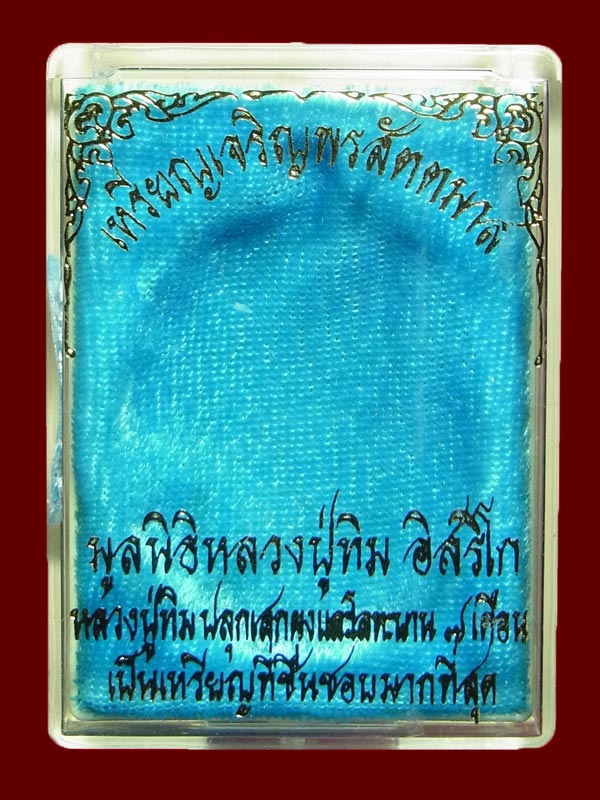 เหรียญเจริญพรสัตตมาส
มูลนิธิหลวงปู่ทิม อิสริโก
หลวงปู่ทิม ปลุกเสกผงและโลหะนาน ๗ เดือน
เป็นเหรียญที่ชื่นชอบมากที่สุด